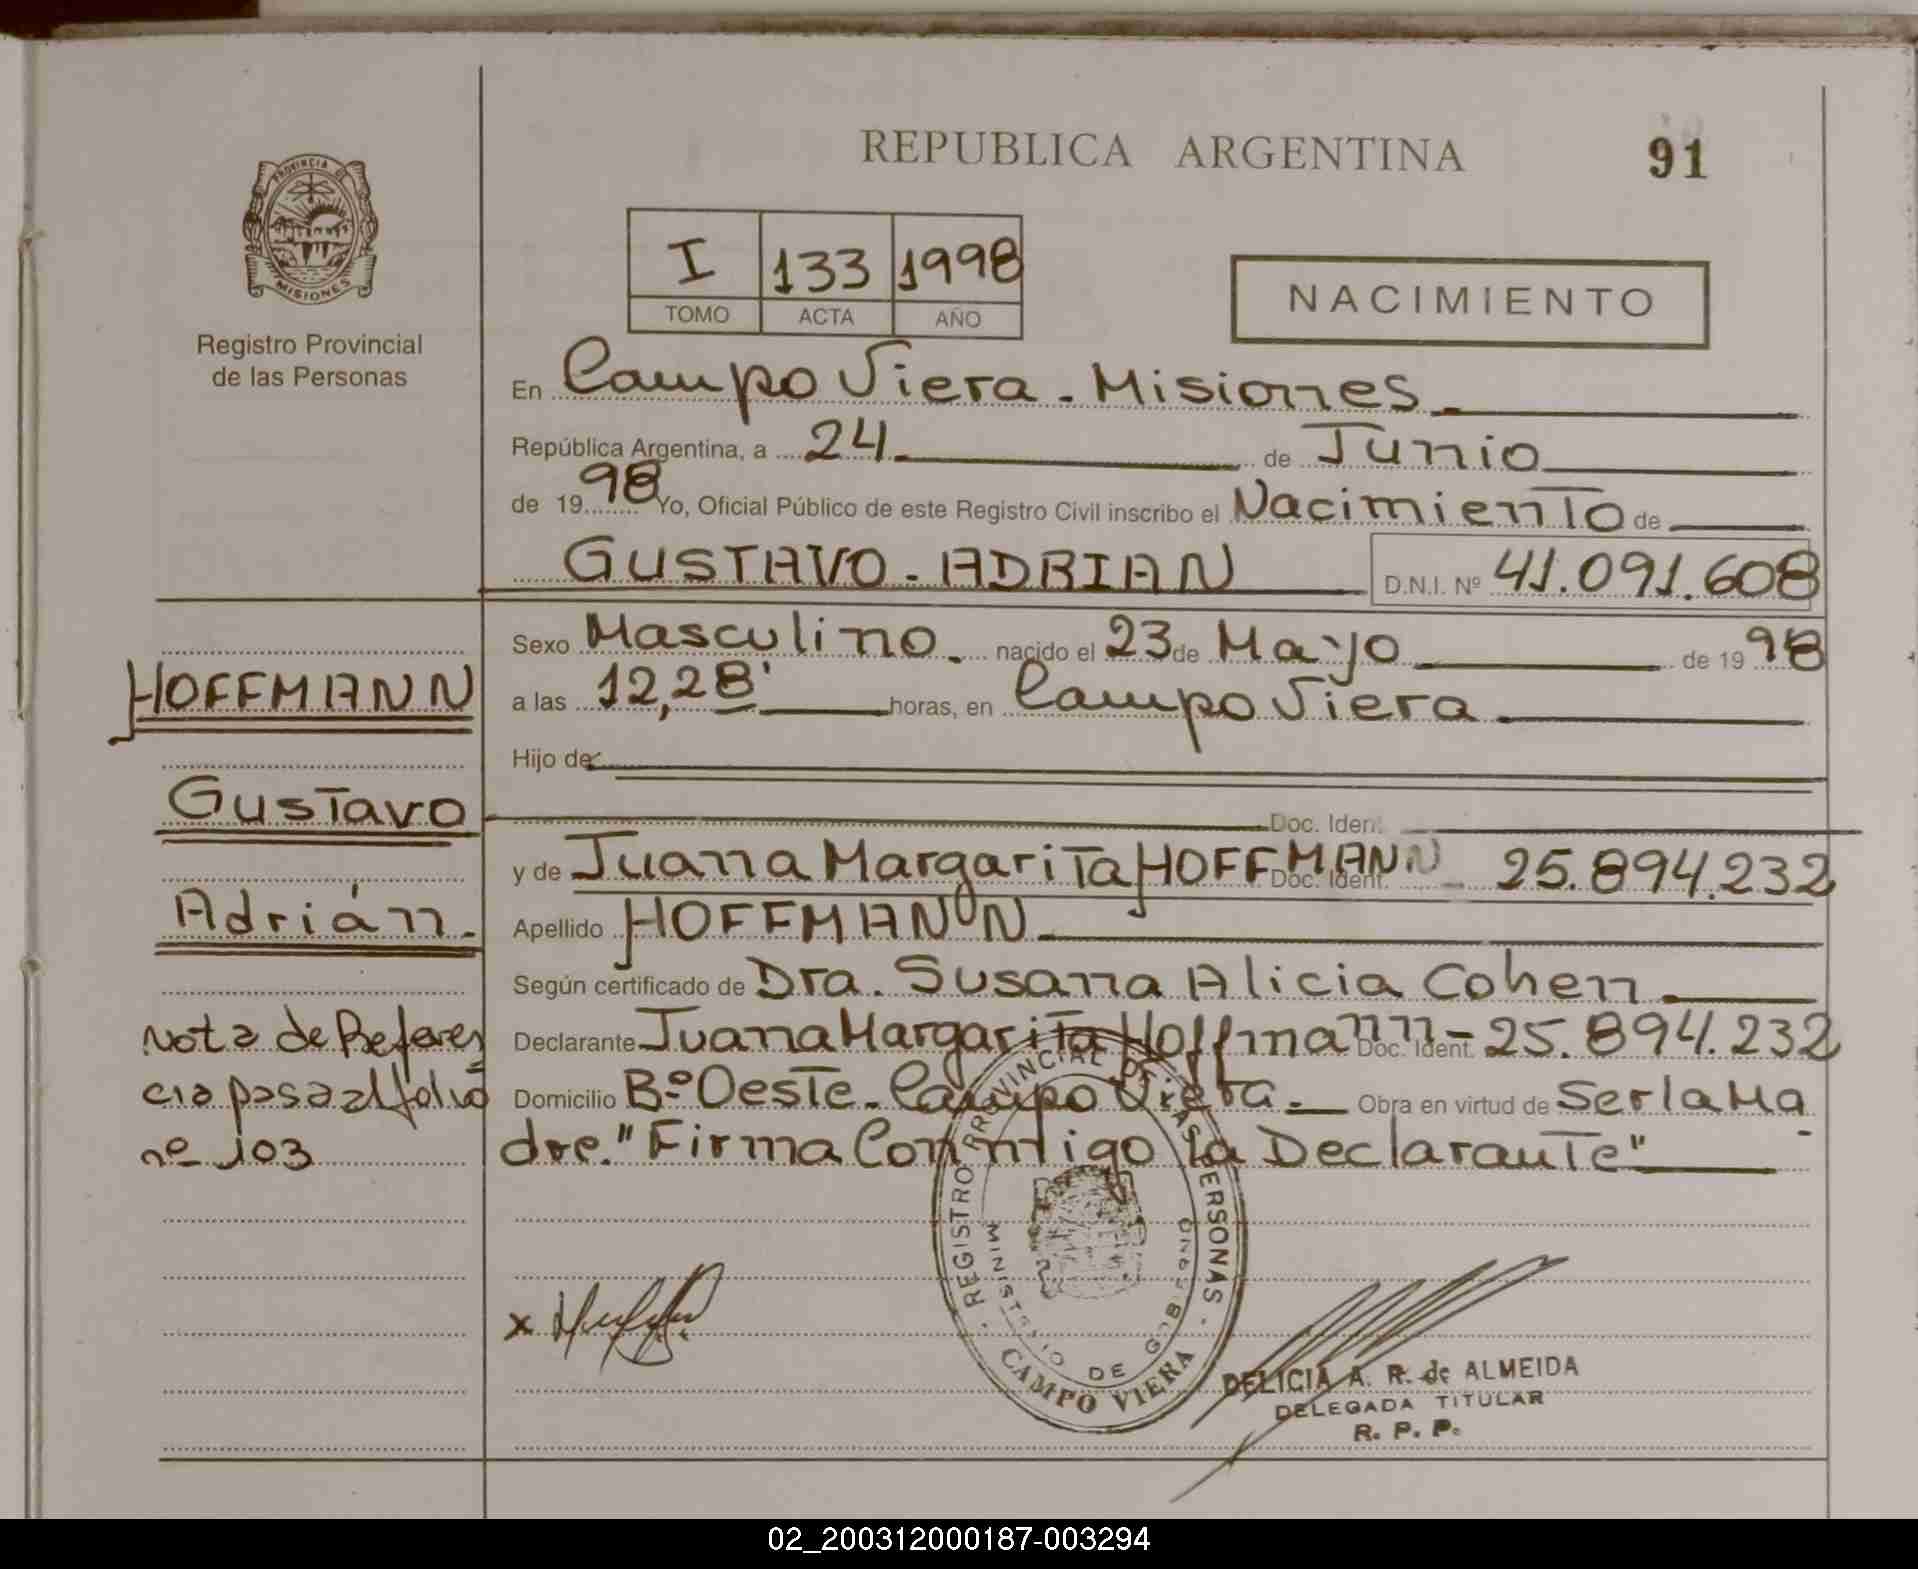 REPUBLICA ARGENTINA
91
PROVINCIA DE
MISIONES
Registro Provincial
de las Personas
I 133 1998
TOMO ACTA AÑO
NACIMIENTO
En Campo Viera - Misiones
República Argentina, a 24 de Junio
de 1998 Yo, Oficial Público de este Registro Civil inscribo el Nacimiento de
GUSTAVO - ADRIAN D.N.I. Nº 41.091.608
Sexo Masculino nacido el 23 de Mayo de 1998
a las 12,28' horas, en Campo Viera
Hijo de:
Doc. Ident.
y de Juana Margarita HOFFMANN Doc. Ident. 25.894.232
Apellido HOFFMANN
Según certificado de Dra. Susana Alicia Cohen
Declarante Juana Margarita Hoffmann - Doc. Ident. 25.894.232
Domicilio Bº Oeste - Campo Viera. Obra en virtud de Ser la Ma
dre. "Firma Conmigo la Declarante"
HOFFMANN
Gustavo
Adrián.
Nota de Referen
cia pasa al folio
nº 103
x
REGISTRO PROVINCIAL DE LAS PERSONAS
MINISTERIO DE GOBIERNO
CAMPO VIERA
DELICIA A. R. de ALMEIDA
DELEGADA TITULAR
R. P. P.
02_200312000187-003294